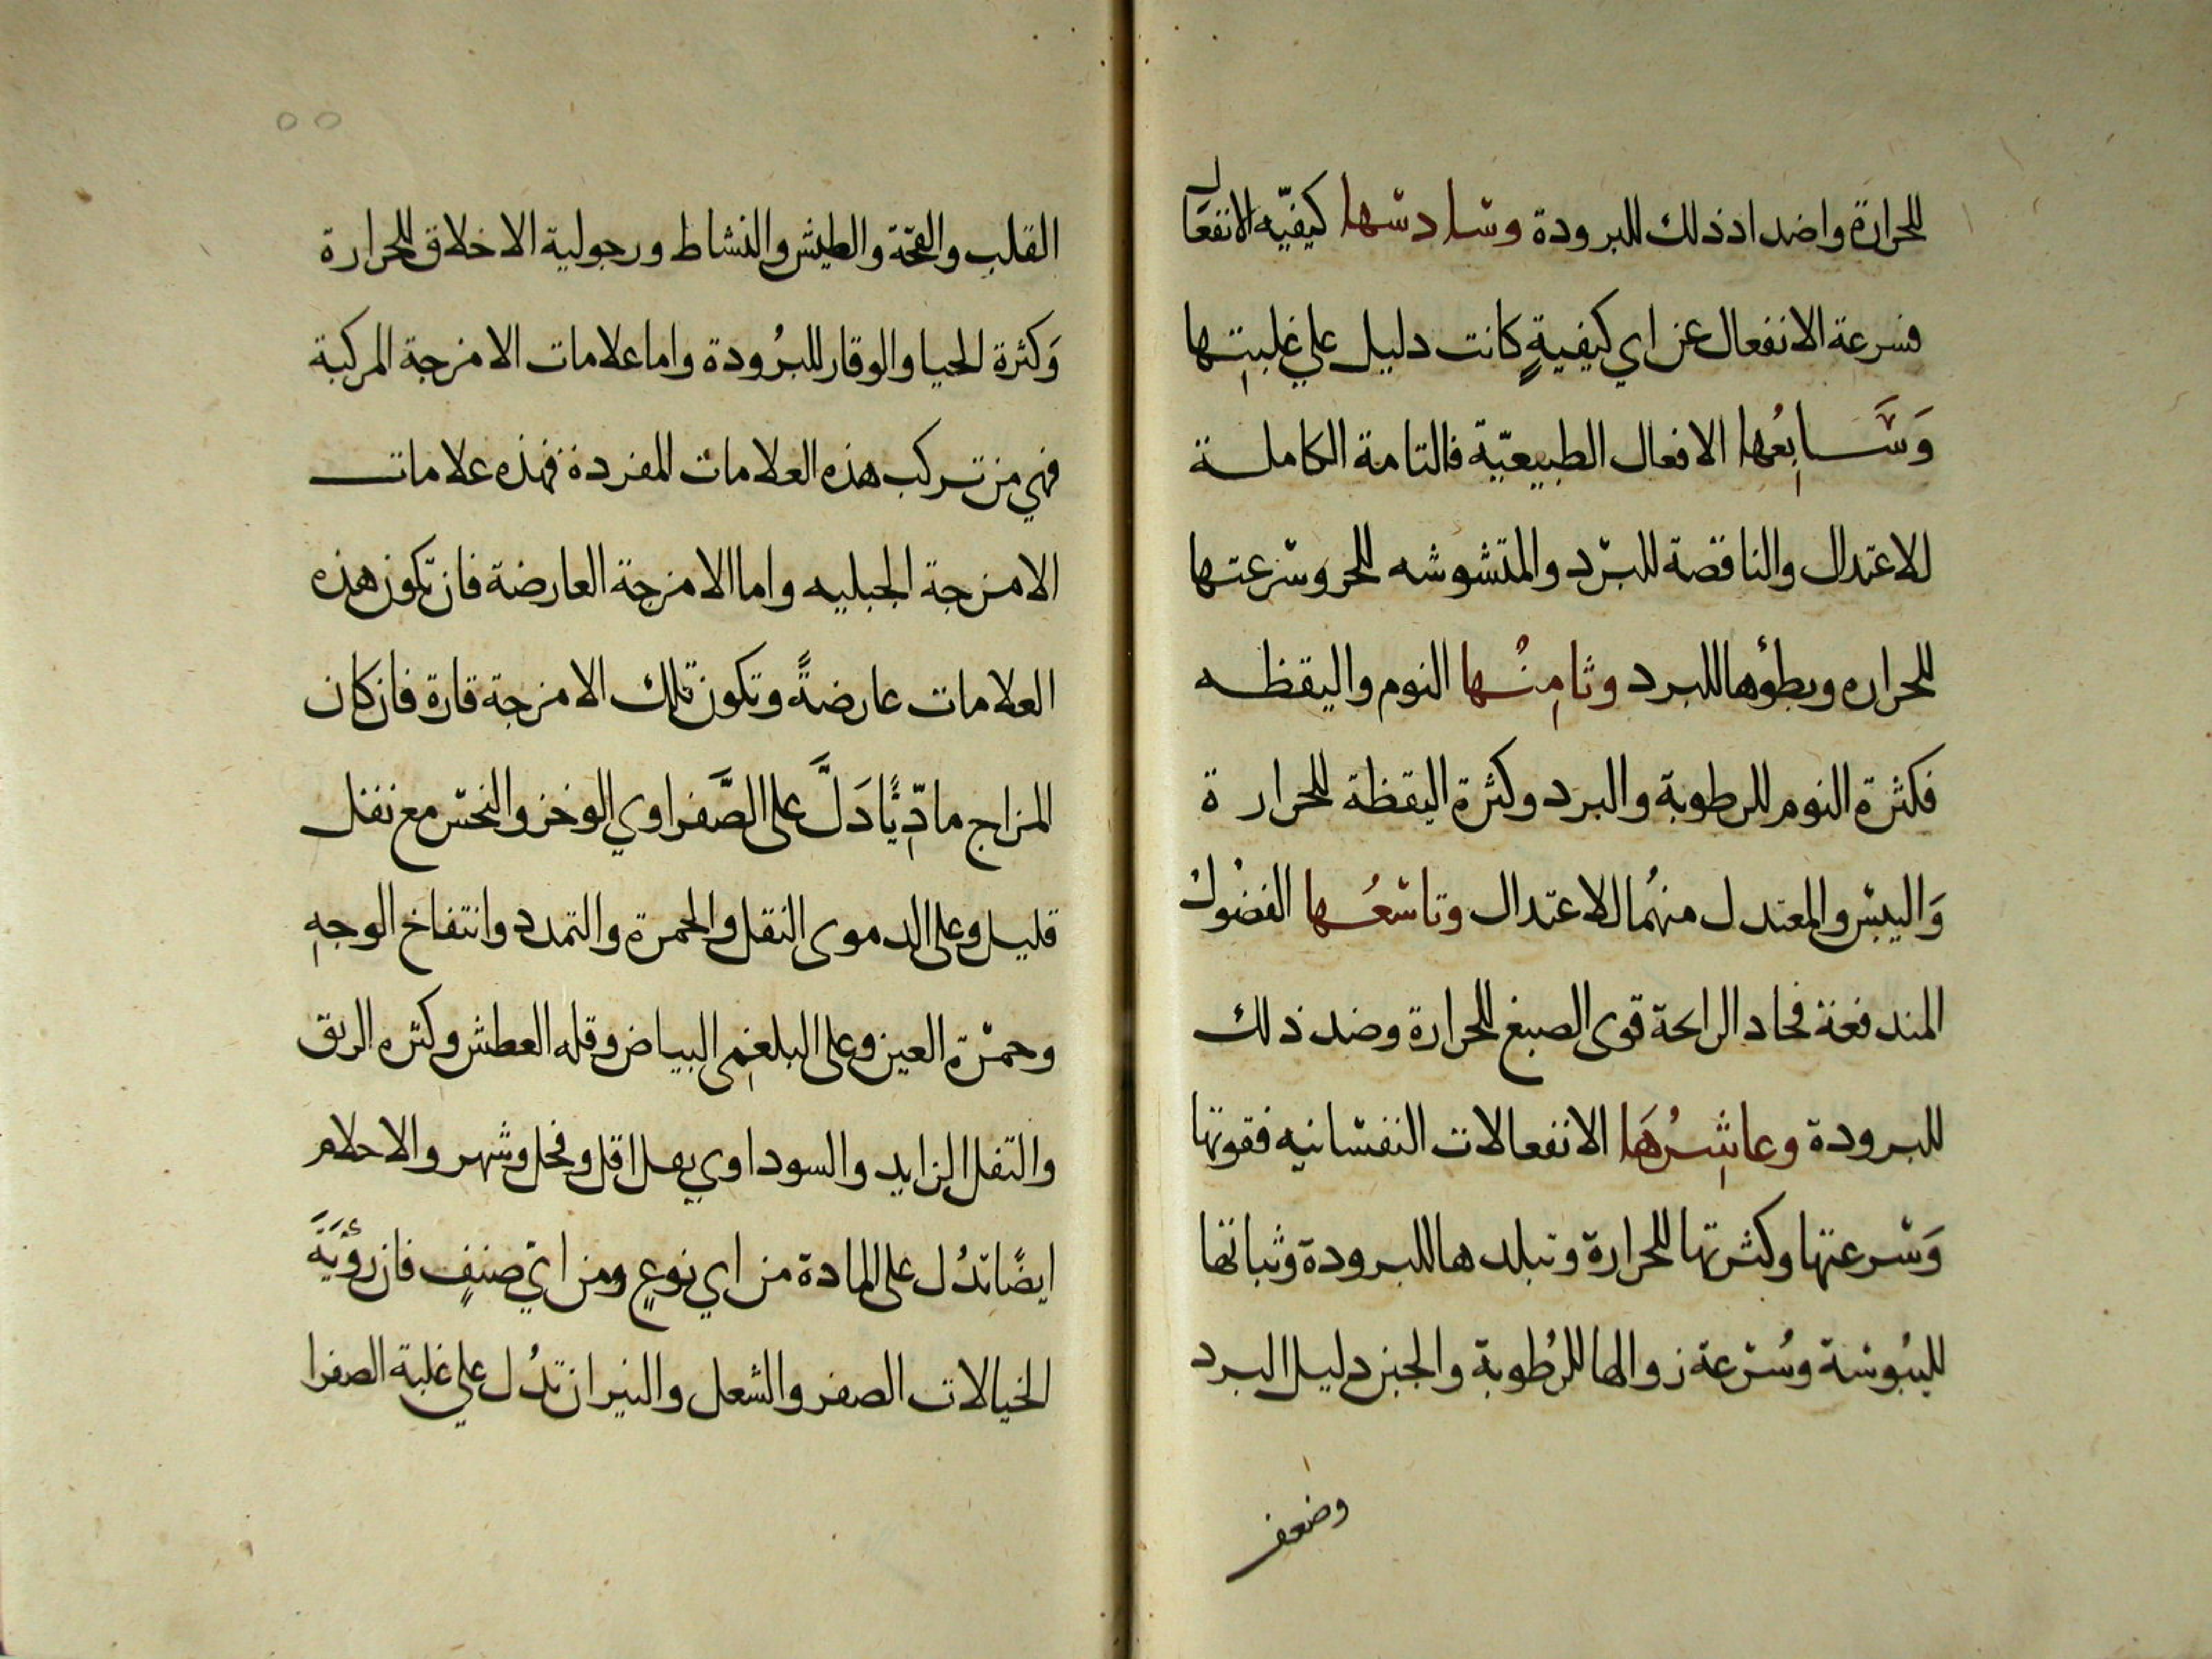 للحرارة واضداد ذلك للبرودة وسادسها كيفيّه الانفعال
فسرعة الانفعال عن اي كيفيةٍ كانت دليل علي غلبتِها
وَسَّابِعُها الافعال الطبيعيّة فالتامة الكاملة
للاعتدال والناقصة للبرد والمتشوشه للحر وسرعتها
للحراره وبطؤها للبرد وثامِنُها النوم واليقظه
فكثرة النوم للرطوبة والبرد وكثرة اليقظة للحرارة
وَاليبس والمعتدل منهُما للاعتدال وتاسعُها الفضُول
المندفعة فحاد الرائحة قوى الصبغ للحرارة وضد ذلك
للبرودة وعاشِرُهَا الانفعالات النفسانيه فقوتها
وَسرعتها وكثرتها للحرارة وتبلدها للبرودة وثباتها
لليبُوسة وسُرعة زوالها للرُطوبة والجبن دليل البرد
وضعف
٥٥
القلب والقحة والطيش والنشاط ورجولية الاخلاق للحرارة
وَكثرة الحيا والوقار للبرُودة واما علامات الامزجة المركبة
فهي من تركب هذه العلامات المفردة فهذه علامات
الامزجة الجبليه واما الامزجة العارضة فان تكون هذه
العلامات عارضةً وتكون تلك الامزجة قارة فان كان
المزاج مادِّيًّا دَلَّ على الصَّفراوي الوخز والنخس مع ثقل
قليل وعلى الدموى الثقل والحمرة والتمدد وانتفاخ الوجهِ
وحمرة العين وعلى البلغمِى البياض وقله العطش وكثره الريق
والثقل الزايد والسوداوي بثقل اقل وفحل وشهر والاحلام
ايضًا تدُل على المادة من اي نوعٍ ومن ايّ صنفٍ فان رؤيَةَ
الخيالات الصفر والشعل والنيران تدُل علي غلبة الصفرا